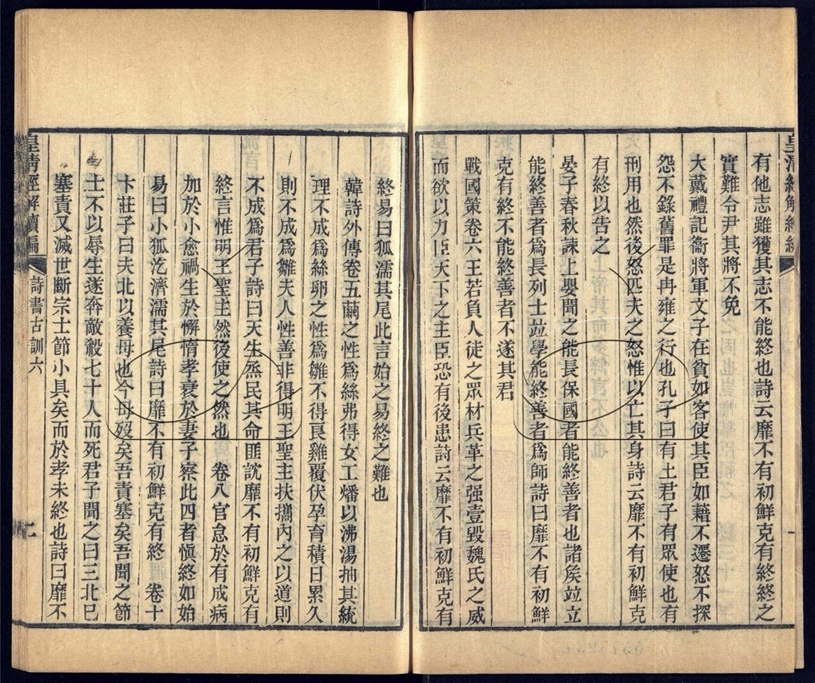 有他志雖獲其志不能終也詩云靡不有初鮮克有終終之
實難令尹其將不免
大戴禮記衞將軍文子在貧如客使其臣如藉不遷怒不探
怨不錄舊罪是冉雍之行也孔子曰有土君子有眾使也有
刑用也然後怒匹夫之怒惟以亡其身詩云靡不有初鮮克
有終以告之
晏子春秋諫上嬰聞之能長保國者能終善者也諸矦竝立
能終善者爲長列士竝學能終善者爲師詩曰靡不有初鮮
克有終不能終善者不遂其君
戰國策卷六王若負人徒之眾材兵革之强壹毀魏氏之威
而欲以力臣天下之主臣恐有後患詩云靡不有初鮮克有
終易曰狐濡其尾此言始之易終之難也
韓詩外傳卷五繭之性爲絲弗得女工燔以沸湯抽其統
理不成爲絲卵之性爲雛不得良雞覆伏孕育積日累久
則不成爲雛夫人性善非得明王聖主扶攜內之以道則
不成爲君子詩曰天生烝民其命匪諶靡不有初鮮克有
終言惟明王聖主然後使之然也 卷八官怠於有成病
加於小愈禍生於懈惰孝衰於妻子察此四者愼終如始
易曰小狐汔濟濡其尾詩曰靡不有初鮮克有終 卷十
卞莊子曰夫北以養母也今母歿矣吾責塞矣吾聞之節
士不以辱生遂奔敵殺七十人而死君子聞之曰三北已
塞責又滅世斷宗士節小具矣而於孝未終也詩曰靡不
皇清經解續編
詩書古訓六